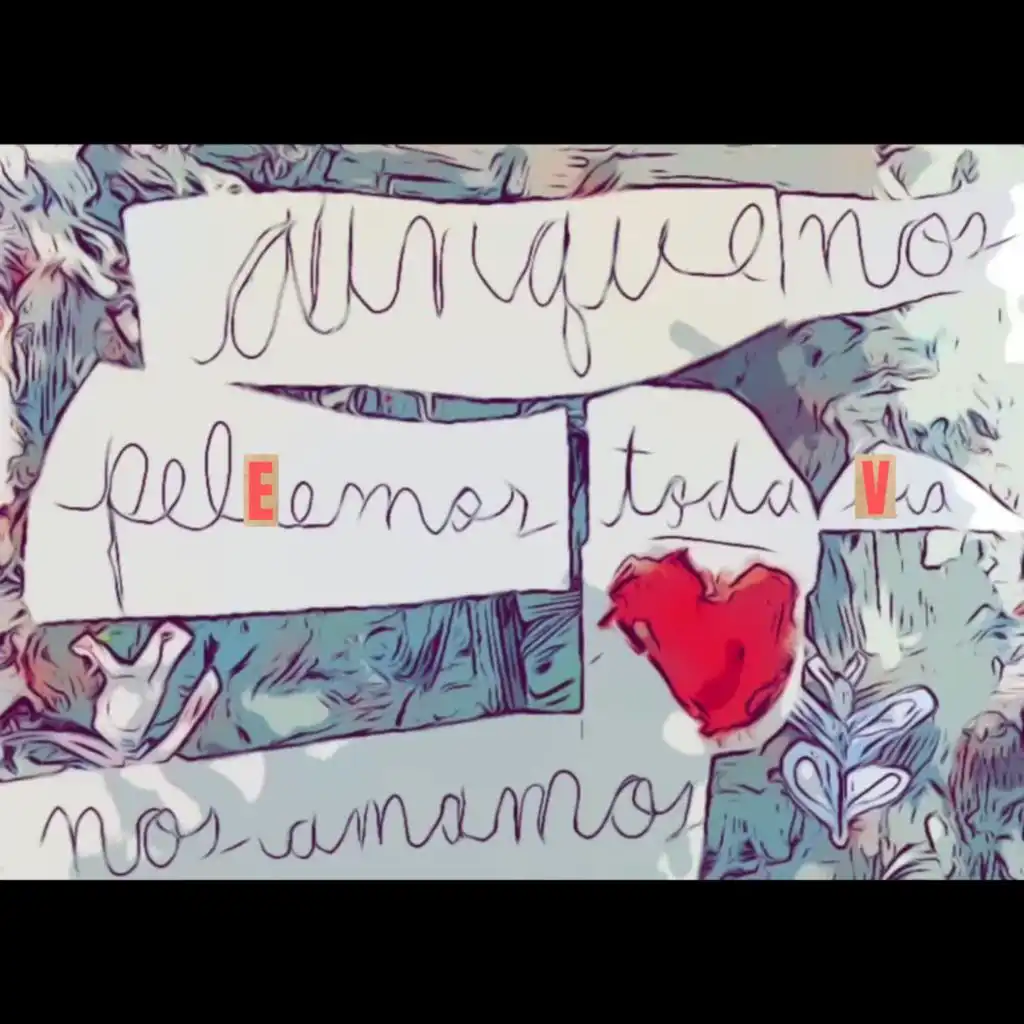 aunque nos
pelEemos toda Via
nos amamos